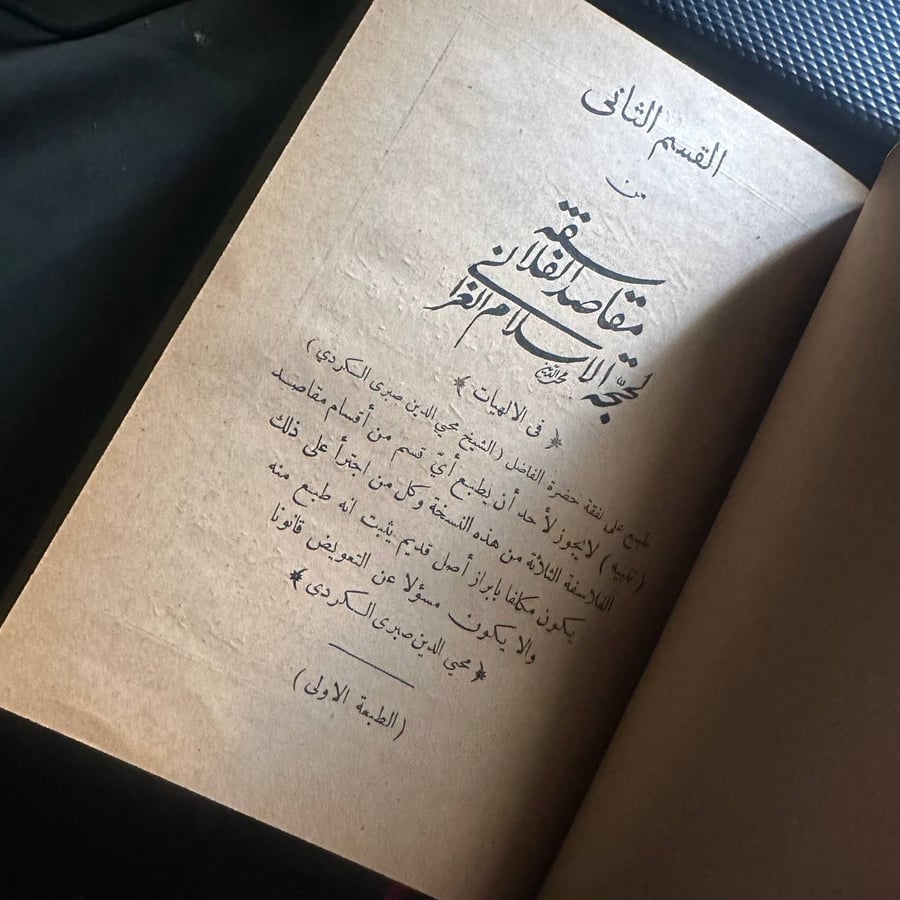 القسم الثانى
من
مقاصد الفلاسفة
لحجّة الاسلام الغزالى
﴿ فى الالهيات ﴾
طبع على نفقة حضرة الفاضل (الشيخ محيي الدين صبرى الكردي)
(تنبيه) لا يجوز لأحد أن يطبع أيّ قسم من أقسام مقاصد
الفلاسفة الثلاثة من هذه النسخة وكل من اجترأ على ذلك
يكون مكلفا بابراز أصل قديم يثبت انه طبع منه
والا يكون مسؤلا عن التعويض قانونا
﴿ محيي الدين صبرى الكردى ﴾
(الطبعة الاولى)